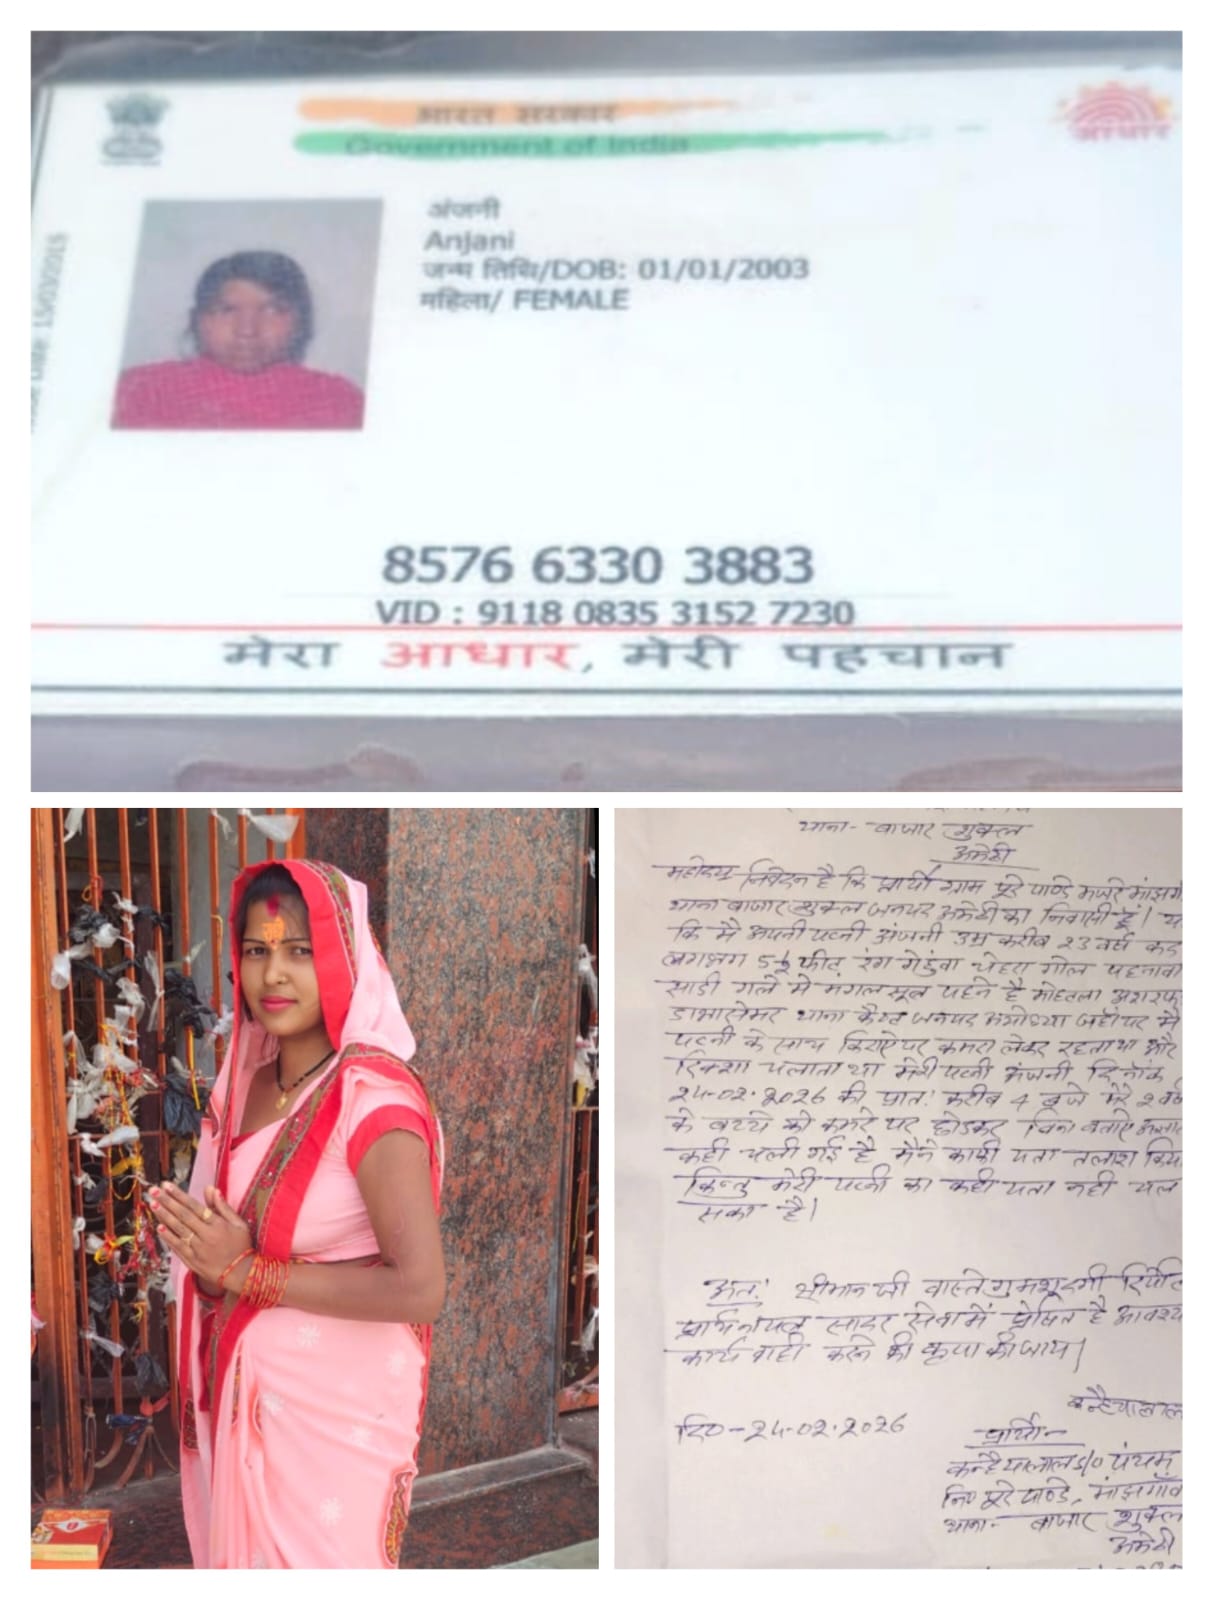 भारत सरकार
Government of India
आधार
अंजनी
Anjani
जन्म तिथि/DOB: 01/01/2003
महिला/ FEMALE
15/03/2015
8576 6330 3883
VID : 9118 0835 3152 7230
मेरा आधार, मेरी पहचान
थाना- बाजार शुक्ल
अमेठी
महोदय निवेदन है कि प्रार्थी ग्राम पूरे पाण्डे मजरे
थाना बाजार शुक्ल जनपद अमेठी का निवासी हूँ।
कि मै अपनी पत्नी अंजनी उम्र करीब 23 वर्ष कद
लगभग 5 फीट रंग गेहुंवा चेहरा गोल पहनावा
साडी गले मे मंगलसूत्र पहने है मोहल्ला
थाना कैण्ट जनपद अयोध्या जहाँ पर मै
पत्नी के साथ किराये पर कमरा लेकर रहता था और
रिक्शा चलाता था मेरी पत्नी अंजनी दिनांक
24-02-2026 की प्रात: करीब 4 बजे मेरे 2 वर्ष
के बच्चे को कमरे पर छोडकर बिना बताए
कही चली गई है मैने काफी पता तलाश किया
किन्तु मेरी पत्नी का कही पता नही चल
सका है।
अत: श्रीमान जी वास्ते गुमशुदगी रिपोर्ट
प्रार्थनापत्र सादर सेवा में प्रेषित है
कार्यवाही करने की कृपा की जाय।
कन्हैयालाल
दि०-24-02-2026
प्रार्थी-
कन्हैयालाल S/o पंचम
नि० पूरे पाण्डे, मांझगाँव
थाना- बाजार शुक्ल
अमेठी